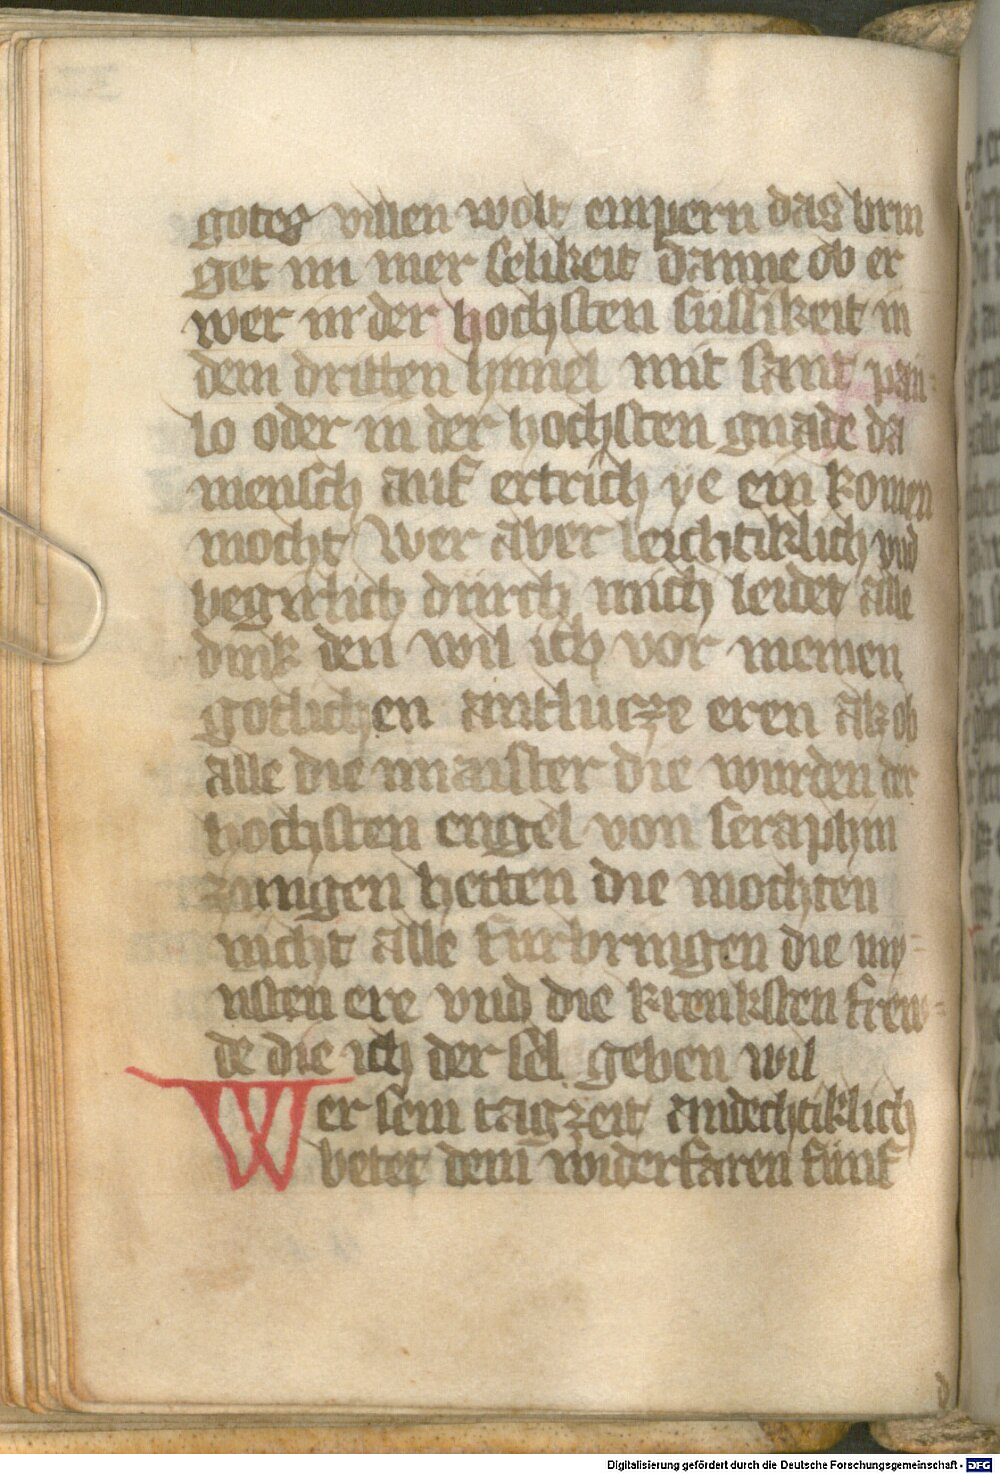 gotes willen wolt empern das brin
get im mer selikeit danne ob er
wer in der hochsten sussikeit in
dem dritten himel mit sant pau-
lo oder in der hochsten gnade da
mensch auf ertrich ye ein komen
mocht Wer aber leichtiklich vnd
begirlich durch mich leidet alle
dink den wil ich vor meinen
gotlichen antlucze eren als ob
alle die maister die wurden der
hochsten engel von seraphin
zungen hetten die mochten
nicht alle furbringen die my-
nsten ere vnd die krenksten frew-
de die ich der sel geben wil
Wer sein tagzeit andechtiklich
betet dem widerfaren funf
Digitalisierung gefördert durch die Deutsche Forschungsgemeinschaft - DFG